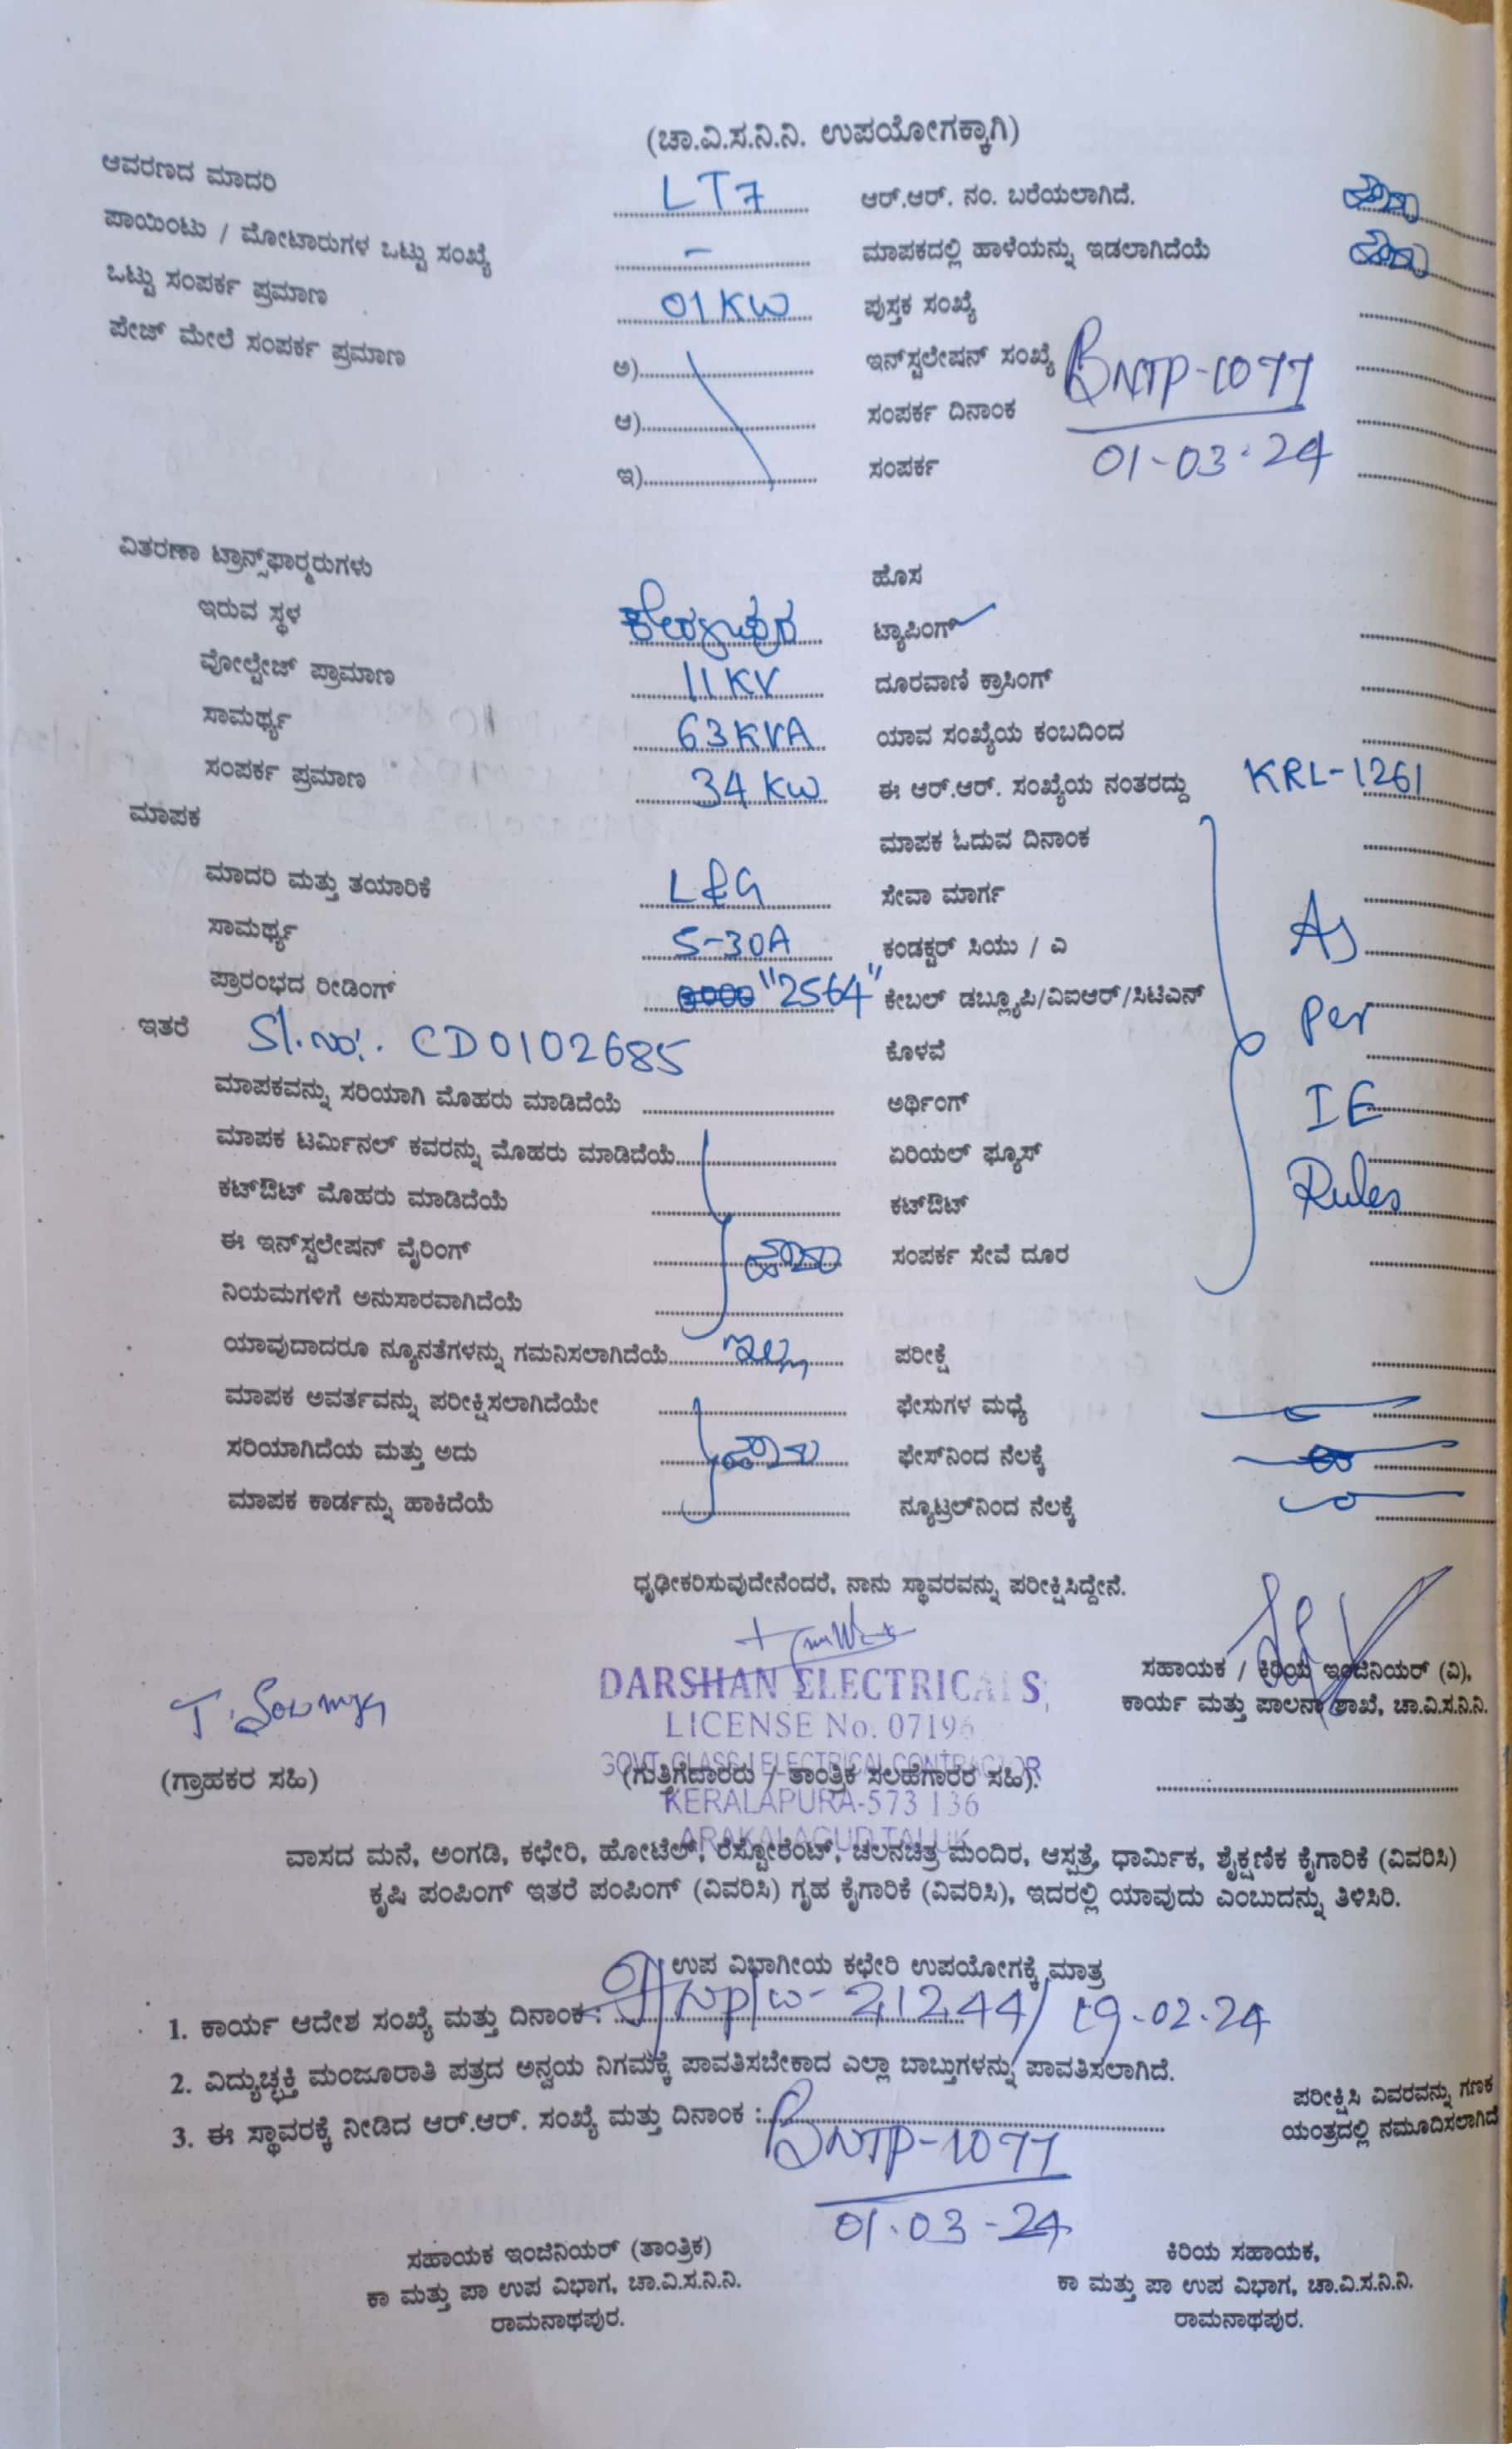 (ಚಾ.ವಿ.ಸ.ನಿ.ನಿ. ಉಪಯೋಗಕ್ಕಾಗಿ)
ಆವರಣದ ಮಾದರಿ LT7 ಆರ್.ಆರ್. ನಂ. ಬರೆಯಲಾಗಿದೆ.
ಪಾಯಿಂಟು / ಮೋಟಾರುಗಳ ಒಟ್ಟು ಸಂಖ್ಯೆ - ಮಾಪಕದಲ್ಲಿ ಹಾಳೆಯನ್ನು ಇಡಲಾಗಿದೆಯೆ
ಒಟ್ಟು ಸಂಪರ್ಕ ಪ್ರಮಾಣ 01 KW ಪುಸ್ತಕ ಸಂಖ್ಯೆ
ಪೇಜ್ ಮೇಲೆ ಸಂಪರ್ಕ ಪ್ರಮಾಣ ಅ) ಇನ್‌ಸ್ಟಲೇಷನ್ ಸಂಖ್ಯೆ BNTP-1077
ಆ) ಸಂಪರ್ಕ ದಿನಾಂಕ
ಇ) ಸಂಪರ್ಕ 01-03-24
ವಿತರಣಾ ಟ್ರಾನ್ಸ್‌ಫಾರ್ಮರುಗಳು ಹೊಸ
ಇರುವ ಸ್ಥಳ ಕೇರಳಾಪುರ ಟ್ಯಾಪಿಂಗ್
ವೋಲ್ಟೇಜ್ ಪ್ರಾಮಾಣ 11 KV ದೂರವಾಣಿ ಕ್ರಾಸಿಂಗ್
ಸಾಮರ್ಥ್ಯ 63 KVA ಯಾವ ಸಂಖ್ಯೆಯ ಕಂಬದಿಂದ
ಸಂಪರ್ಕ ಪ್ರಮಾಣ 34 KW ಈ ಆರ್.ಆರ್. ಸಂಖ್ಯೆಯ ನಂತರದ್ದು KRL-1261
ಮಾಪಕ ಮಾಪಕ ಓದುವ ದಿನಾಂಕ
ಮಾದರಿ ಮತ್ತು ತಯಾರಿಕೆ L&G ಸೇವಾ ಮಾರ್ಗ As
ಸಾಮರ್ಥ್ಯ 5-30A ಕಂಡಕ್ಟರ್ ಸಿಯು / ಎ
ಪ್ರಾರಂಭದ ರೀಡಿಂಗ್ "2564" ಕೇಬಲ್ ಡಬ್ಲ್ಯೂಪಿ/ವಿಐಆರ್/ಸಿಟಿಎಸ್ Per
ಇತರೆ Sl. no: CD0102685 ಕೊಳವೆ
ಮಾಪಕವನ್ನು ಸರಿಯಾಗಿ ಮೊಹರು ಮಾಡಿದೆಯೆ ಅರ್ಥಿಂಗ್ IE
ಮಾಪಕ ಟರ್ಮಿನಲ್ ಕವರನ್ನು ಮೊಹರು ಮಾಡಿದೆಯೆ ಏರಿಯಲ್ ಫ್ಯೂಸ್
ಕಟ್‌ಔಟ್ ಮೊಹರು ಮಾಡಿದೆಯೆ ಕಟ್‌ಔಟ್ Rules
ಈ ಇನ್‌ಸ್ಟಲೇಷನ್ ವೈರಿಂಗ್ ಹೌದು ಸಂಪರ್ಕ ಸೇವೆ ದೂರ
ನಿಯಮಗಳಿಗೆ ಅನುಸಾರವಾಗಿದೆಯೆ
ಯಾವುದಾದರೂ ನ್ಯೂನತೆಗಳನ್ನು ಗಮನಿಸಲಾಗಿದೆಯೆ ಇಲ್ಲ ಪರೀಕ್ಷೆ
ಮಾಪಕ ಅವರ್ತವನ್ನು ಪರೀಕ್ಷಿಸಲಾಗಿದೆಯೇ ಫೇಸುಗಳ ಮಧ್ಯೆ
ಸರಿಯಾಗಿದೆಯ ಮತ್ತು ಅದು ಹೌದು ಫೇಸ್‌ನಿಂದ ನೆಲಕ್ಕೆ
ಮಾಪಕ ಕಾರ್ಡನ್ನು ಹಾಕಿದೆಯೆ ನ್ಯೂಟ್ರಲ್‌ನಿಂದ ನೆಲಕ್ಕೆ
ಧೃಢೀಕರಿಸುವುದೇನೆಂದರೆ, ನಾನು ಸ್ಥಾವರವನ್ನು ಪರೀಕ್ಷಿಸಿದ್ದೇನೆ.
T. Soumya DARSHAN ELECTRICALS, ಸಹಾಯಕ / ಕಿರಿಯ ಇಂಜಿನಿಯರ್ (ವಿ),
LICENSE No. 07196 ಕಾರ್ಯ ಮತ್ತು ಪಾಲನಾ ಶಾಖೆ, ಚಾ.ವಿ.ಸ.ನಿ.ನಿ.
GOVT. CLASS-I ELECTRICAL CONTRACTOR
(ಗ್ರಾಹಕರ ಸಹಿ) (ಗುತ್ತಿಗೆದಾರರು / ತಾಂತ್ರಿಕ ಸಲಹೆಗಾರರ ಸಹಿ).
KERALAPURA-573 136
ARAKALAGUD TALUK
ವಾಸದ ಮನೆ, ಅಂಗಡಿ, ಕಛೇರಿ, ಹೋಟೆಲ್, ರೆಸ್ಟೋರೆಂಟ್, ಚಲನಚಿತ್ರ ಮಂದಿರ, ಆಸ್ಪತ್ರೆ, ಧಾರ್ಮಿಕ, ಶೈಕ್ಷಣಿಕ ಕೈಗಾರಿಕೆ (ವಿವರಿಸಿ)
ಕೃಷಿ ಪಂಪಿಂಗ್ ಇತರೆ ಪಂಪಿಂಗ್ (ವಿವರಿಸಿ) ಗೃಹ ಕೈಗಾರಿಕೆ (ವಿವರಿಸಿ), ಇದರಲ್ಲಿ ಯಾವುದು ಎಂಬುದನ್ನು ತಿಳಿಸಿರಿ.
ಉಪ ವಿಭಾಗೀಯ ಕಛೇರಿ ಉಪಯೋಗಕ್ಕೆ ಮಾತ್ರ
1. ಕಾರ್ಯ ಆದೇಶ ಸಂಖ್ಯೆ ಮತ್ತು ದಿನಾಂಕ : 21244/ 19-02-24
2. ವಿದ್ಯುಚ್ಛಕ್ತಿ ಮಂಜೂರಾತಿ ಪತ್ರದ ಅನ್ವಯ ನಿಗಮಕ್ಕೆ ಪಾವತಿಸಬೇಕಾದ ಎಲ್ಲಾ ಬಾಬ್ತುಗಳನ್ನು ಪಾವತಿಸಲಾಗಿದೆ.
3. ಈ ಸ್ಥಾವರಕ್ಕೆ ನೀಡಿದ ಆರ್.ಆರ್. ಸಂಖ್ಯೆ ಮತ್ತು ದಿನಾಂಕ : BNTP-1077
ಪರೀಕ್ಷಿಸಿ ವಿವರವನ್ನು ಗಣಕ
ಯಂತ್ರದಲ್ಲಿ ನಮೂದಿಸಲಾಗಿದೆ
01.03-24
ಸಹಾಯಕ ಇಂಜಿನಿಯರ್ (ತಾಂತ್ರಿಕ) ಕಿರಿಯ ಸಹಾಯಕ,
ಕಾ ಮತ್ತು ಪಾ ಉಪ ವಿಭಾಗ, ಚಾ.ವಿ.ಸ.ನಿ.ನಿ. ಕಾ ಮತ್ತು ಪಾ ಉಪ ವಿಭಾಗ, ಚಾ.ವಿ.ಸ.ನಿ.ನಿ.
ರಾಮನಾಥಪುರ. ರಾಮನಾಥಪುರ.